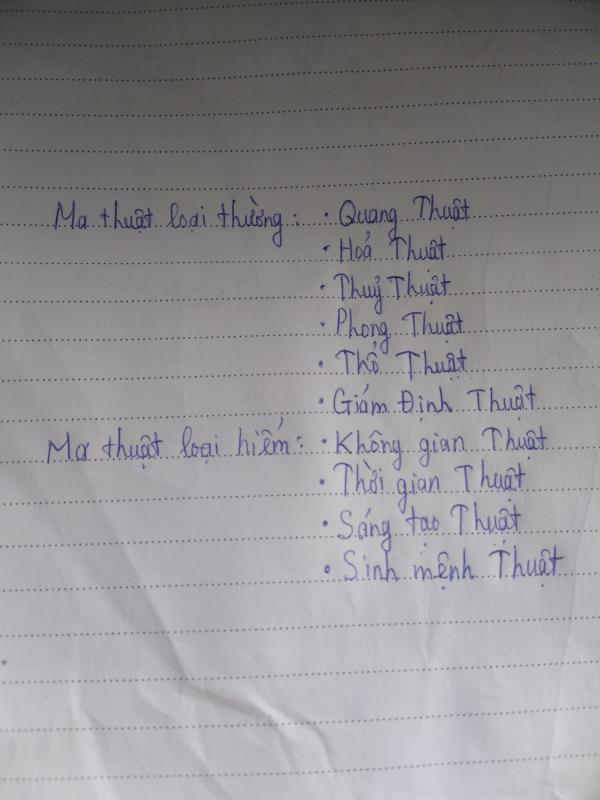 Ma thuật loại thường: • Quang Thuật
• Hoả Thuật
• Thuỷ Thuật
• Phong Thuật
• Thổ Thuật
• Giám Định Thuật
Ma thuật loại hiếm: • Không gian Thuật
• Thời gian Thuật
• Sáng tạo Thuật
• Sinh mệnh Thuật